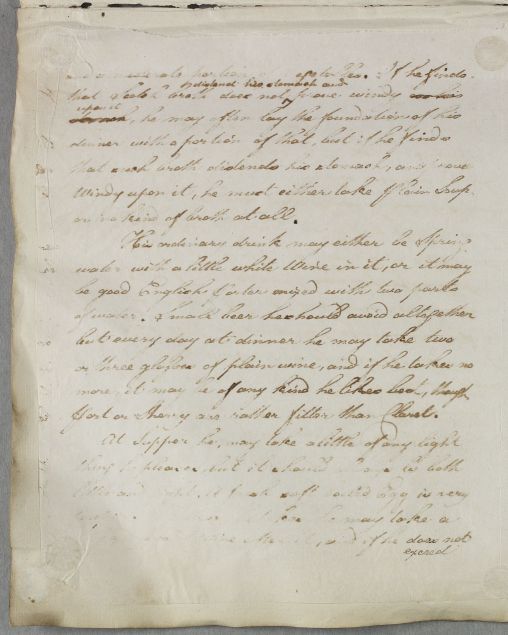 and a moderate portion of vegetables. If he finds
that Scotch broth does not distend his stomach and prove windy on his
upon it
stomach, he may often lay the foundation of his
dinner with a portion of that, but if he finds
that such broth distends his stomach, and proves
Windy upon it, he must either take Plain Soup
or no kind of broth at all.
His ordinary drink may either be Spring
water with a little white Wine in it, or it may
be good English Porter mixed with two parts
of water. Small beer he should avoid altogether
but every day at dinner he may take two
or three glasses of plain wine, and if he takes no
more, it may be of any kind he likes best, though
Port or Sherry are rather fitter than Claret.
At Supper he may take a little of any light
thing he pleases but it should always be both
little and light. A fresh soft boiled egg is very
he may take a
and if he does not
exceed